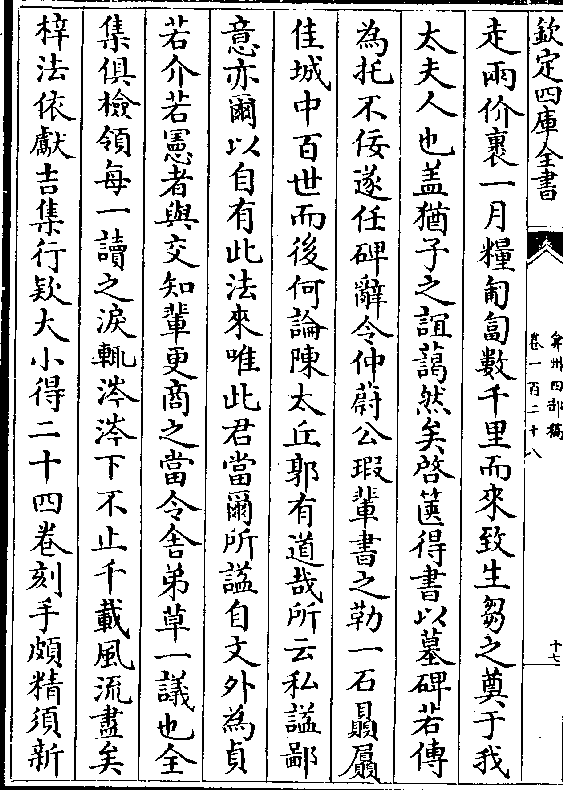 欽定四庫全書
弇州四部稿
卷一百二十八
十七
走兩价裹一月糧匍匐數千里而來致生芻之奠于我
太夫人也盖猶子之誼藹然矣啓篋得書以墓碑若傳
為托不佞遂任碑辭令仲蔚公瑕輩書之勒一石贔屭
佳城中百世而後何論陳太丘郭有道哉所云私諡鄙
意亦爾以自有此法來唯此君當爾所諡自文外為貞
若介若憲者與交知輩更商之當令舎弟草一議也全
集俱檢領每一讀之淚輒涔涔下不止千載風流盡矣
梓法依獻吉集行欵大小得二十四卷刻手頗精須新